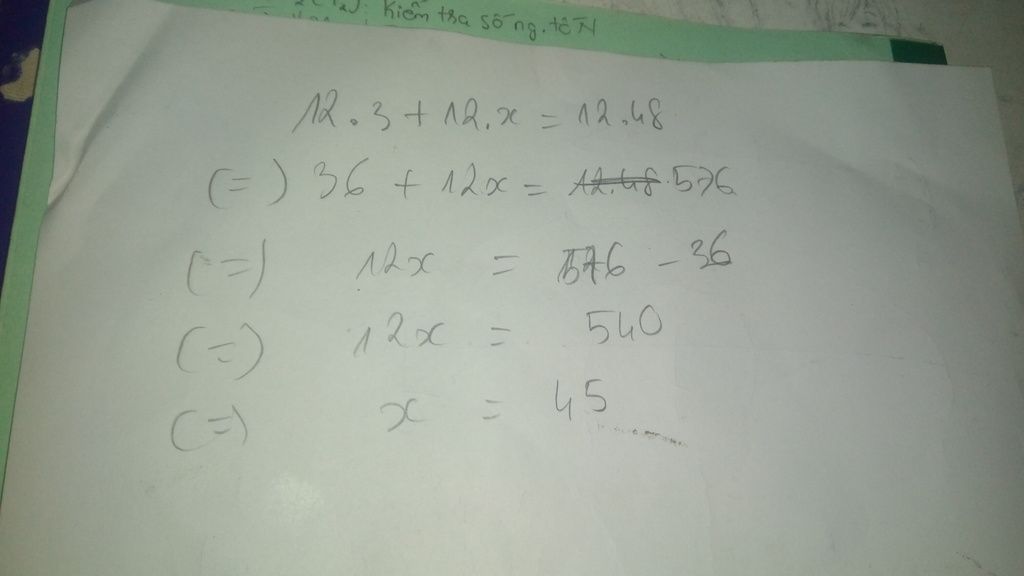 Kiểm tra số ng.tố N
12.3 + 12.x = 12.48
(=) 36 + 12x = 576
(=) 12x = 576 - 36
(=) 12x = 540
(=) x = 45